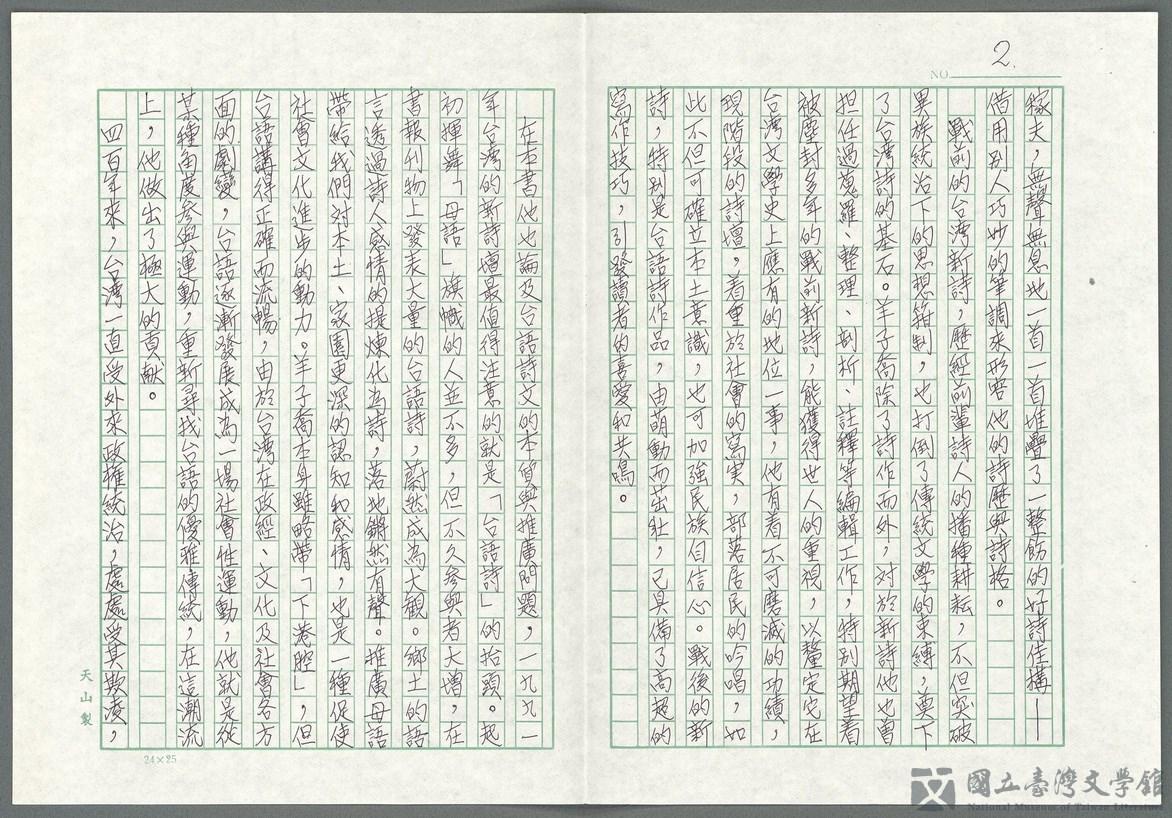 NO. 2.
稼夫,無聲無息地一首一首堆疊了一整的好詩佳構——
借用別人巧妙的筆調來形容他的詩歷與詩格。
戰前的台湾新詩,歷經前輩詩人的播種耕耘,不但突破
異族統治下的思想箝制,也打倒了傳統文學的束縛,奠下
了台湾詩的基石。羊子喬除了詩作而外,對於新詩他也曾
担任過蒐羅、整理、剖析、註釋等編輯工作,特別期望着
被塵封多年的戰前新詩,能獲得世人的重視,以釐定它在
台湾文學史上應有的地位一事,他有着不可磨滅的功績,
現階段的詩壇。着重於社會的寫实,部落居民的吟唱,如
此不但可確立本土意識,也可加強民族自信心。戰後的新
詩,特別是台語詩作品,由萌動而茁壯,已具備了高超的
寫作技巧,引發讀者的喜愛和共鳴。
在本書他也論及台語詩文的本質與推廣問題,一九九一
年台湾的新詩壇最值得注意的就是「台語詩」的抬頭。起
初揮舞「母語」旗幟的人並不多,但不久參與者大增,在
書報刊物上發表大量的台語詩,蔚然成為大観。鄉土的語
言透過詩人感情的提煉化為詩,落地鏘然有聲。推廣母語
帶給我們對本土、家園更深的認知和感情,也是一種促使
社會文化進步的動力。羊子喬本身雖略帶「下港腔」,但
台語講得正確而流暢,由於台灣在政經、文化及社會各方
面的劇變,台語逐漸發展成為一場社會性運動,他就是從
某種角度參與運動,重新尋找台語的優雅傳統,在這潮流
上,他做出了極大的貢献。
四百年來,台湾一直受外來政權統治,處處受其欺凌,
天山製
24×25
國立臺灣文學館
National Museum of Taiwan Literature